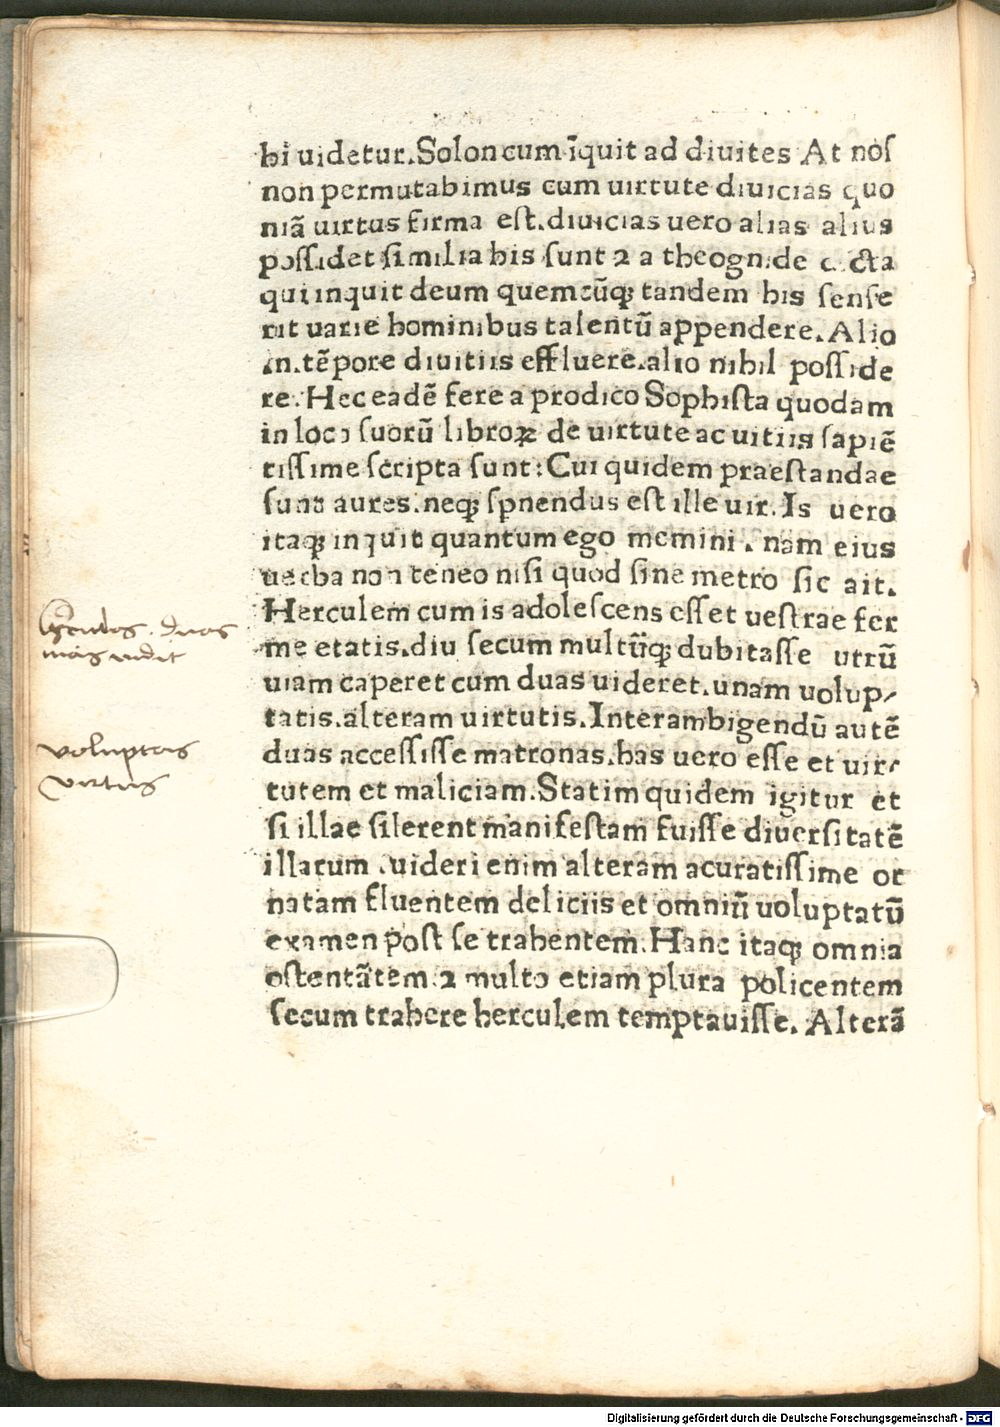 bi uidetur. Solon cum īquit ad diuites At nos
non permutabimus cum uirtute diuicias quo
niā uirtus firma est. diuicias uero alias alius
possidet similia his sunt 2 a theognide dicta
qui inquit deum quemcūqꝫ tandem his sense
rit uarie hominibus talentū appendere. Alio
in tēpore diuitiis effluere. alio nihil posside
re. Hec eadē fere a prodico Sophista quodam
in loco suorū libroꝝ de uirtute ac uitiis sapiē
tissime scripta sunt: Cui quidem praestandae
sunt aures. neqꝫ spnendus est ille uir. Is uero
itaqꝫ inquit quantum ego memini. nam eius
uerba non teneo nisi quod sine metro sic ait.
Herculem cum is adolescens esset uestrae fer
me etatis. diu secum multūqꝫ dubitasse utrū
uiam caperet cum duas uideret. unam uolup-
tatis. alteram uirtutis. Interambigendū autē
duas accessisse matronas. has uero esse et uir-
tutem et maliciam. Statim quidem igitur et
si illae silerent manifestam fuisse diuersitatē
illarum. uideri enim alteram acuratissime or
natam fluentem deliciis et omniū uoluptatū
examen post se trahentem. Hanc itaqꝫ omnia
ostentātem. 2 multo etiam plura policentem
secum trahere herculem temptauisse. Alterā
duas
uidit
voluptas
virtus
Digitalisierung gefördert durch die Deutsche Forschungsgemeinschaft - DFG